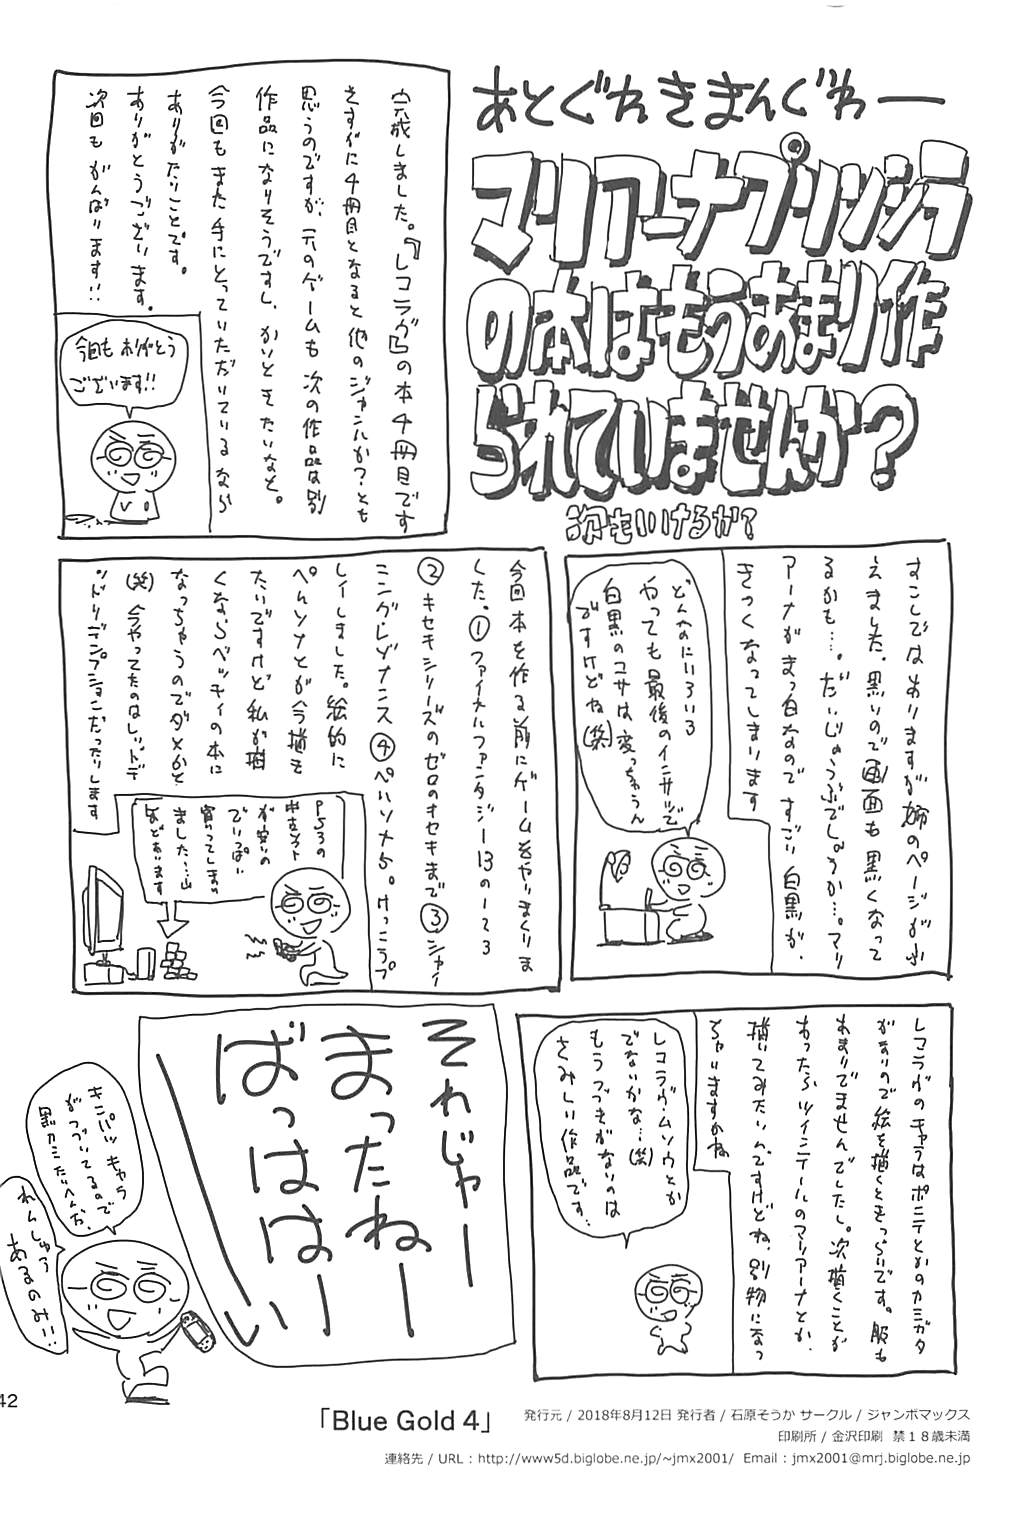 あとぐわきまんぐわー
マリアーナプリンシラ
の本はもうあまり作
られていませんか?
次もいけるか?
完成しました。『レコラヴ』の本4冊目です
さすがに4冊目となると他のジャンルか?とも
思うのですが、元のゲームも次の作品は別
作品になりそうですし、かいときたいなと。
今回もまた手にとっていただいているなら
ありがたいことです。
ありがとうございます。
次回もがんばります!!
今回もありがとう
ございます!!
すこしではありますが姉のページがふ
えました。黒いので画面も黒くなって
るかも…。だいじょうぶでしょうか…。マリ
アーナがまっ白なのですごい白黒が、
きつくなってしまいます
どんなにいろいろ
やっても最後のインサツで
白黒のコサは変っちゃうん
ですけどね(笑)
今回本を作る前にゲームをやりまくりま
した。①ファイナルファンタジー13の1〜3
②キセキシリーズのゼロのキセキまで③シャイ
ニング・レゾナンス④ペルソナ5。けっこうプ
レイしました。絵的に
ぺるソナとか今描き
たいですけど私が描
くならベッティの本に
なっちゃうのでダメかと
(笑)今やってたのはレッドデ
ッドリデンプションだったりします
PS3の
中古ソフト
が安いの
でいっぱい
買ってしまい
ました…山
ほどあります
レコラヴのキャラはポニテとかのカミガタ
がないので絵を描くときつらいです。服も
あまりでませんでしたし。次描くことが
あったらツインテールのマリアーナとか、
描いてみたいんですけどね、別物になっ
ちゃいますかね
レコラヴ・ムソウとか
でないかな…(笑)
もうつづきがないのは
さみしい作品です…
それじゃー
まったねー
ばっははーい
キンパツキャラ
がつづいてるので
黒カミたいへんだ、
れんしゅう
あるのみ!!
42
「Blue Gold 4」
発行元 / 2018年8月12日 発行者 / 石原そうか サークル / ジャンボマックス
印刷所 / 金沢印刷 禁18歳未満
連絡先 / URL : http://www5d.biglobe.ne.jp/~jmx2001/ Email : jmx2001@mrj.biglobe.ne.jp